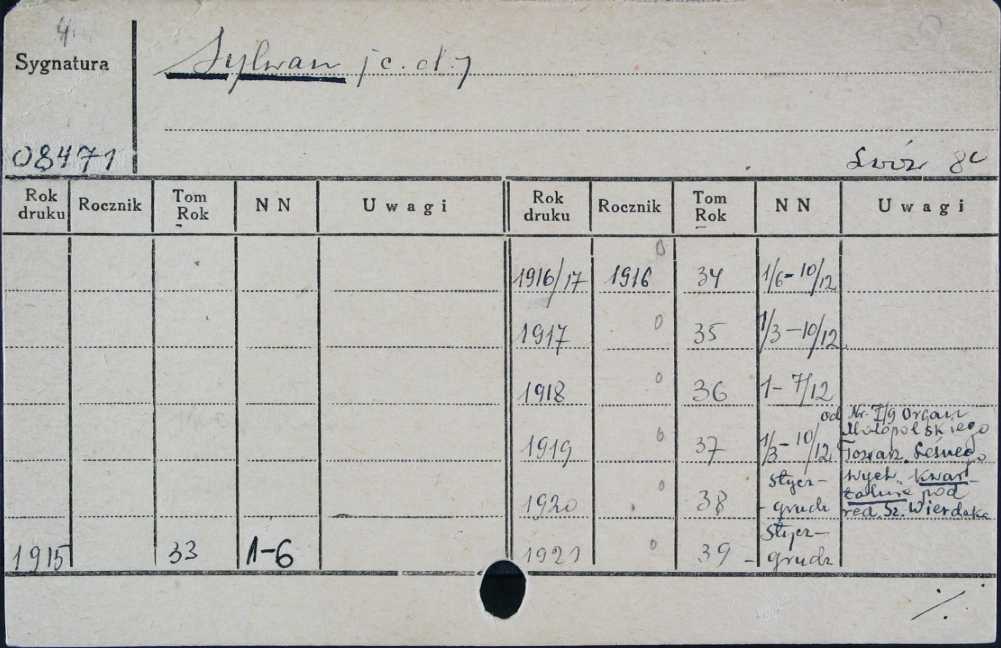 4
Sygnatura
Sylwan /c.d./
08471
Lwów 8°
Rok druku Rocznik Tom Rok NN Uwagi Rok druku Rocznik Tom Rok NN Uwagi
1916/17 1916 34 1/6-10/12
1917 35 1/3-10/12
1918 36 1-7/12
1919 37 1/3-10/12 od Nr. 7/9 Organ
Małopolskiego
Towarz. Leśnego
1920 38 stycz-
grudz
wych. kwar-
talnie pod
red. Sz. Wierdaka
1915 33 1-6 1921 39 stycz-
grudz
./.